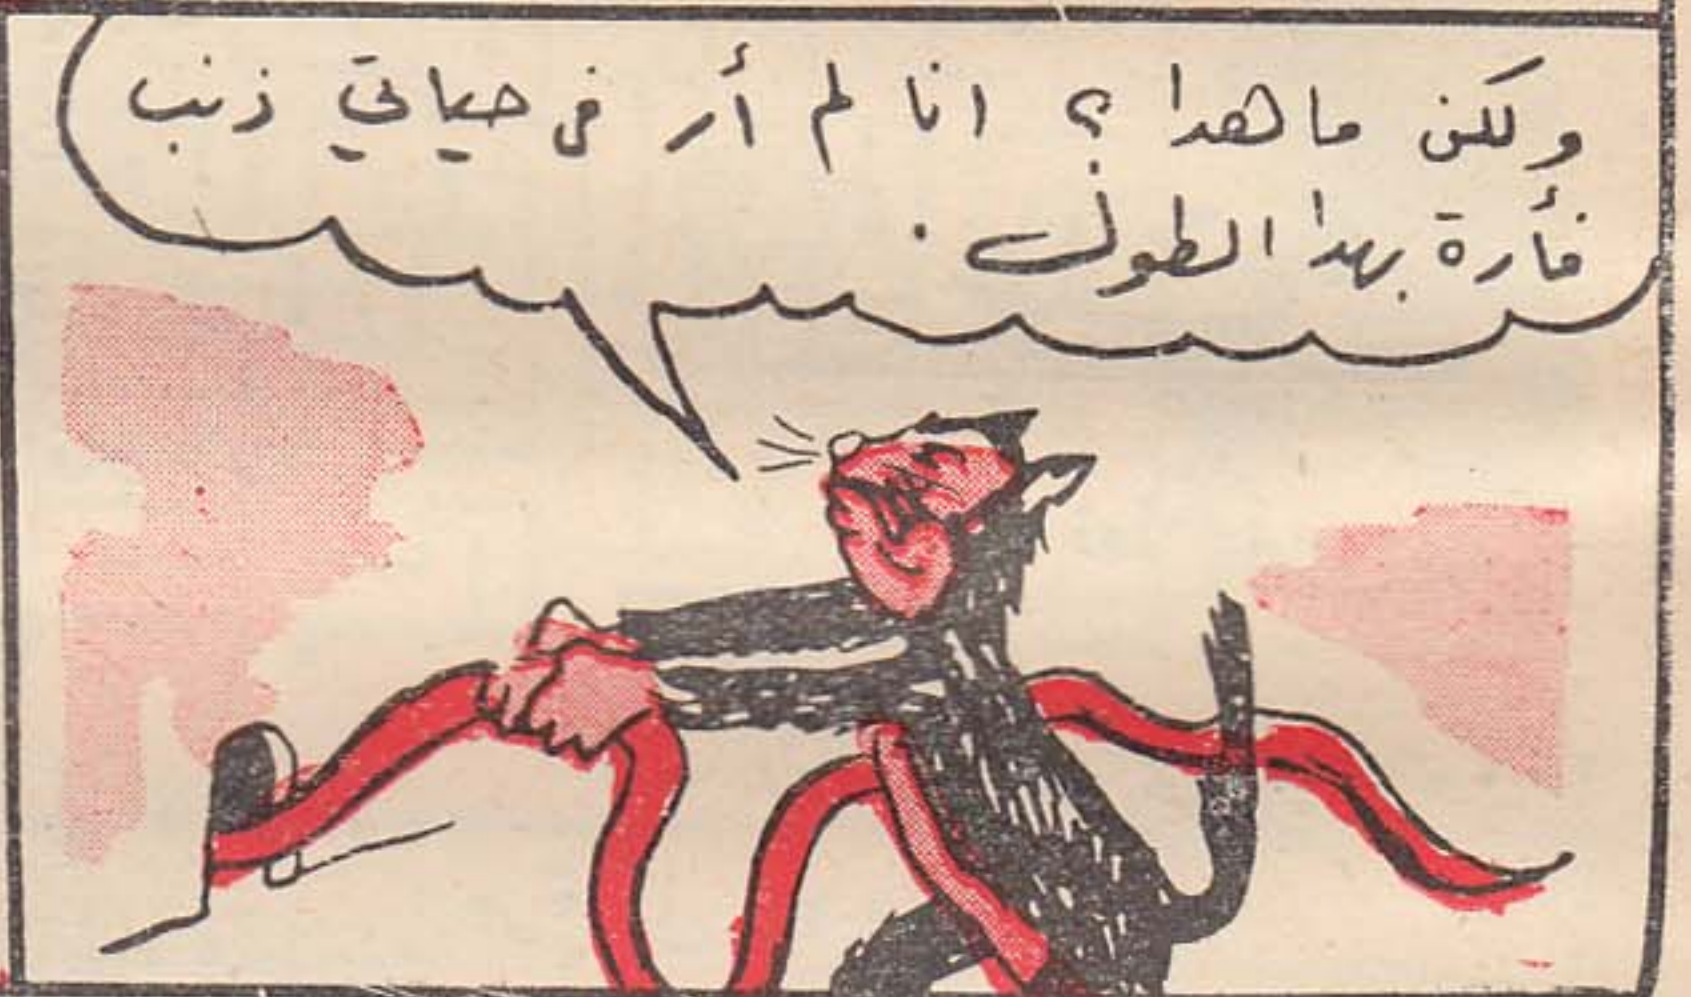 ولكن ما هدا ؟ انا لم أر فى حياتي ذنب
فأرة بهدا الطول .